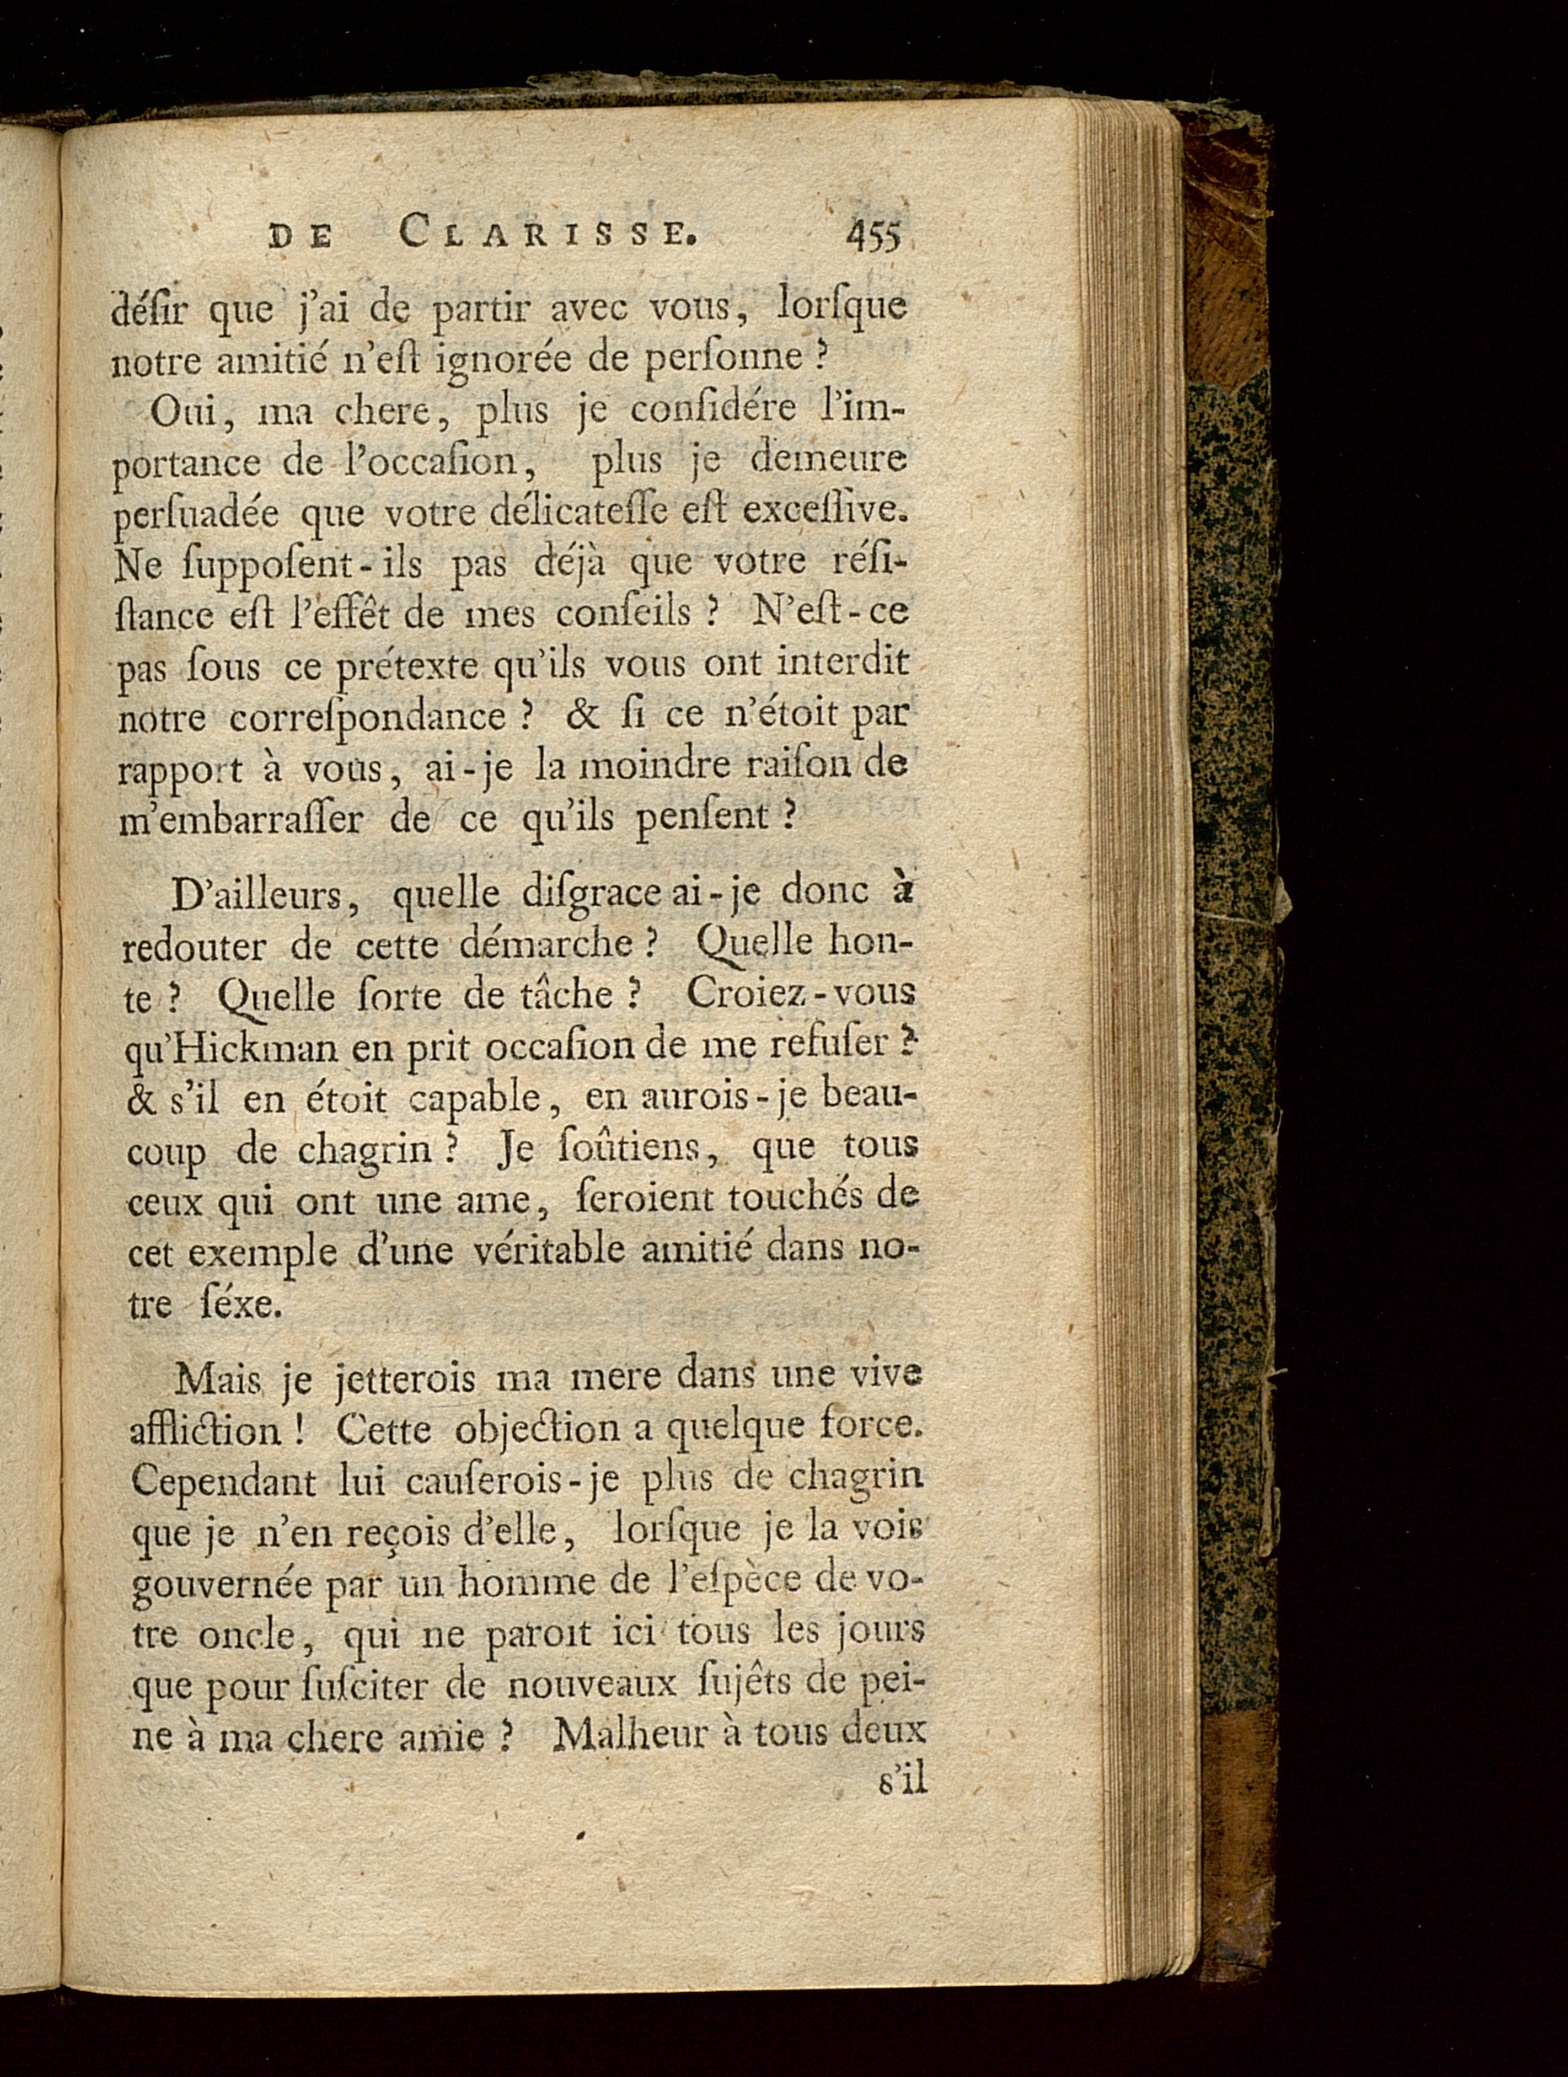 DE CLARISSE. 455
déſir que j'ai de partir avec vous, lorſque
notre amitié n'eſt ignorée de perſonne ?
Oui, ma chere, plus je conſidére l'im-
portance de l'occaſion, plus je demeure
perſuadée que votre délicateſſe eſt exceſſive.
Ne ſuppoſent-ils pas déjà que votre réſi-
ſtance eſt l'effêt de mes conſeils ? N'eſt-ce
pas ſous ce prétexte qu'ils vous ont interdit
notre correſpondance ? & ſi ce n'étoit par
rapport à vous, ai-je la moindre raiſon de
m'embarraſſer de ce qu'ils penſent ?
D'ailleurs, quelle diſgrace ai-je donc à
redouter de cette démarche ? Quelle hon-
te ? Quelle ſorte de tâche ? Croiez-vous
qu'Hickman en prit occaſion de me refuſer ?
& s'il en étoit capable, en aurois-je beau-
coup de chagrin ? Je ſoûtiens, que tous
ceux qui ont une ame, ſeroient touchés de
cet exemple d'une véritable amitié dans no-
tre ſéxe.
Mais je jetterois ma mere dans une vive
affliction ! Cette objection a quelque force.
Cependant lui cauſerois-je plus de chagrin
que je n'en reçois d'elle, lorſque je la vois
gouvernée par un homme de l'eſpèce de vo-
tre oncle, qui ne paroit ici tous les jours
que pour ſuſciter de nouveaux ſujêts de pei-
ne à ma chere amie ? Malheur à tous deux
s'il